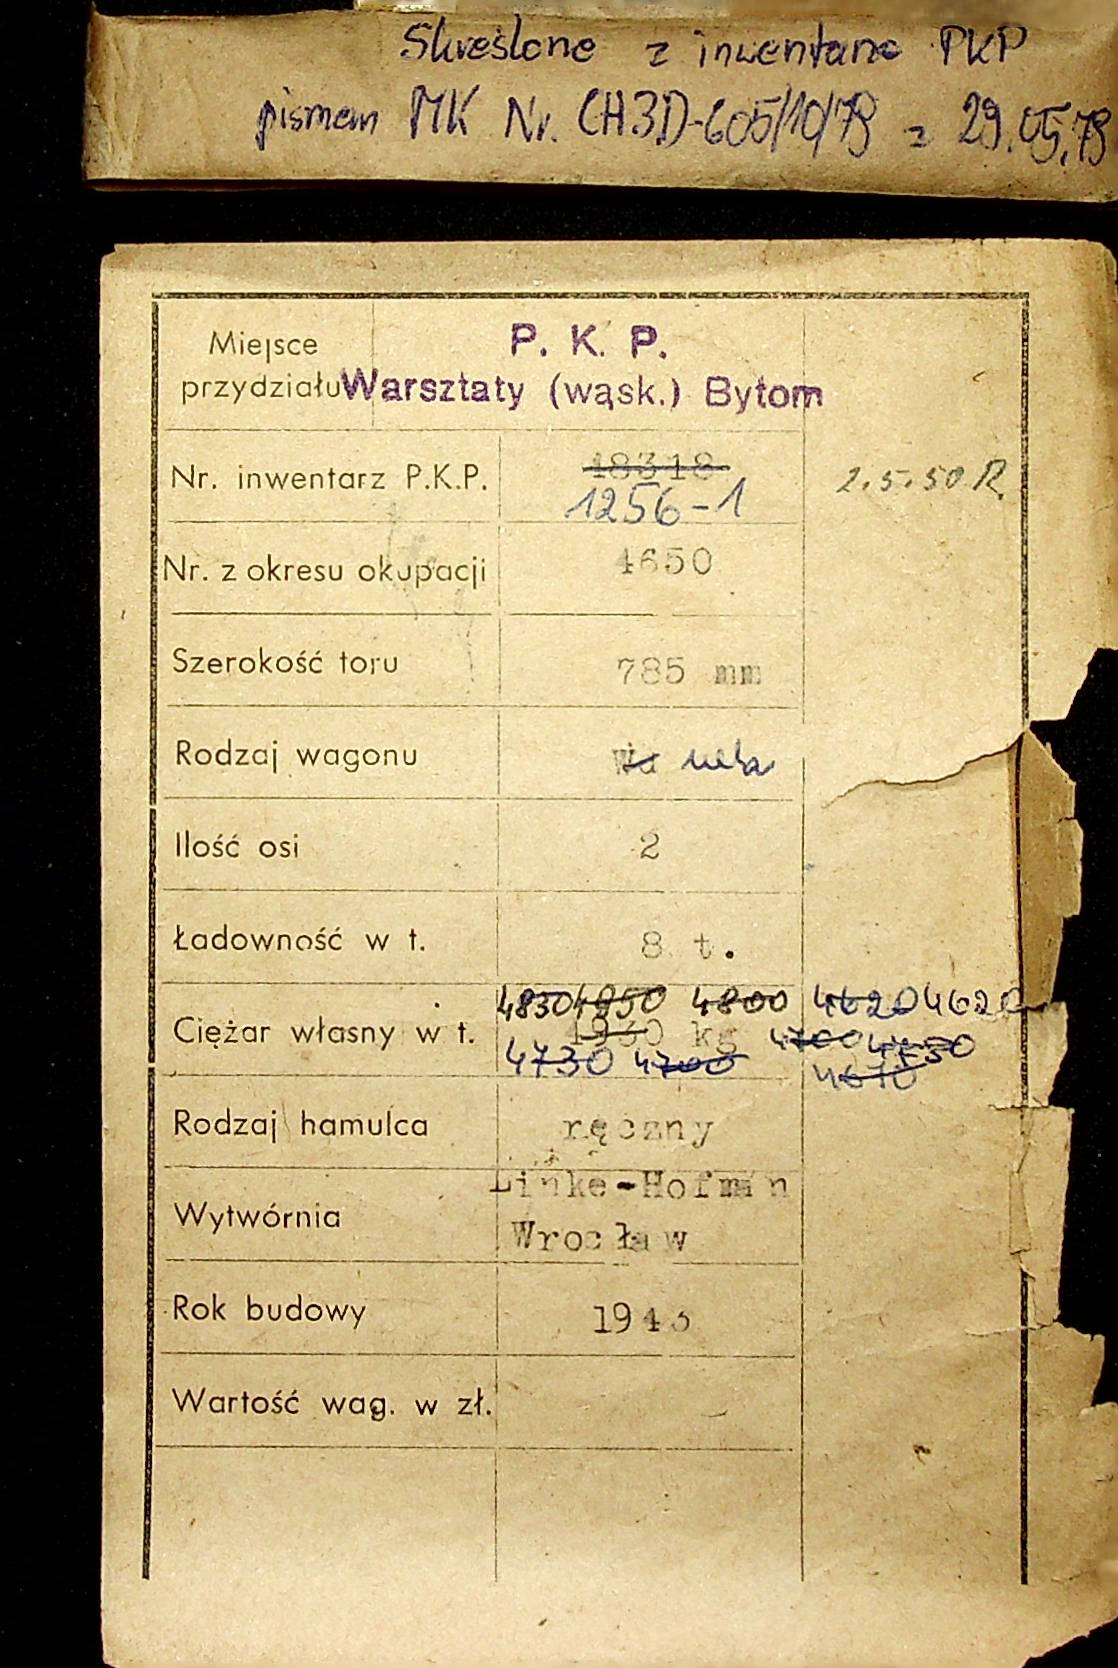 Skreślone z inwentarza PKP
pismem MK Nr. CH3D-605/10/79 z 29.05.79
Miejsce przydziału
P. K. P.
Warsztaty (wąsk.) Bytom
Nr. inwentarz P.K.P. 18318
1256-1 2.5.50 R.
Nr. z okresu okupacji 4650
Szerokość toru 785 mm
Rodzaj wagonu
Ilość osi 2
Ładowność w t. 8 t.
4830 4850 4800 4620 4620
Ciężar własny w t. 1930 kg 4700 4750
4730 4700 4670
Rodzaj hamulca ręczny
Linke-Hofman
Wytwórnia Wrocław
Rok budowy 1943
Wartość wag. w zł.